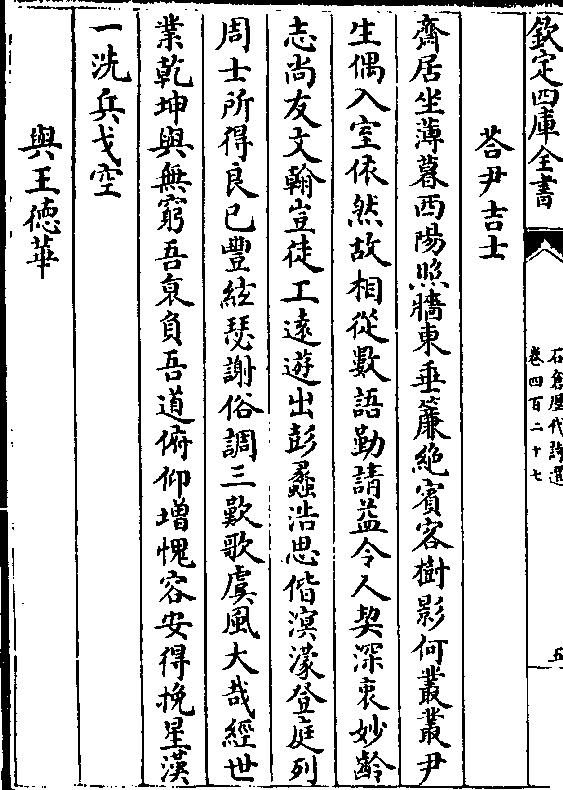 欽定四庫全書
石倉歷代詩選
卷四百二十七
五
荅尹吉士
齊居坐薄暮西陽照牆東垂簾絶賓客樹影何叢叢尹
生偶入室依然故相從數語勤請益令人契深衷妙齡
志尚友文翰豈徒工遠遊出彭蠡浩思偕溟濛登庭列
周士所得良已豐絃瑟謝俗調三歎歌虞風大哉經世
業乾坤與無窮吾衰負吾道俯仰增愧容安得挽星漢
一洗兵戈空
與王德華